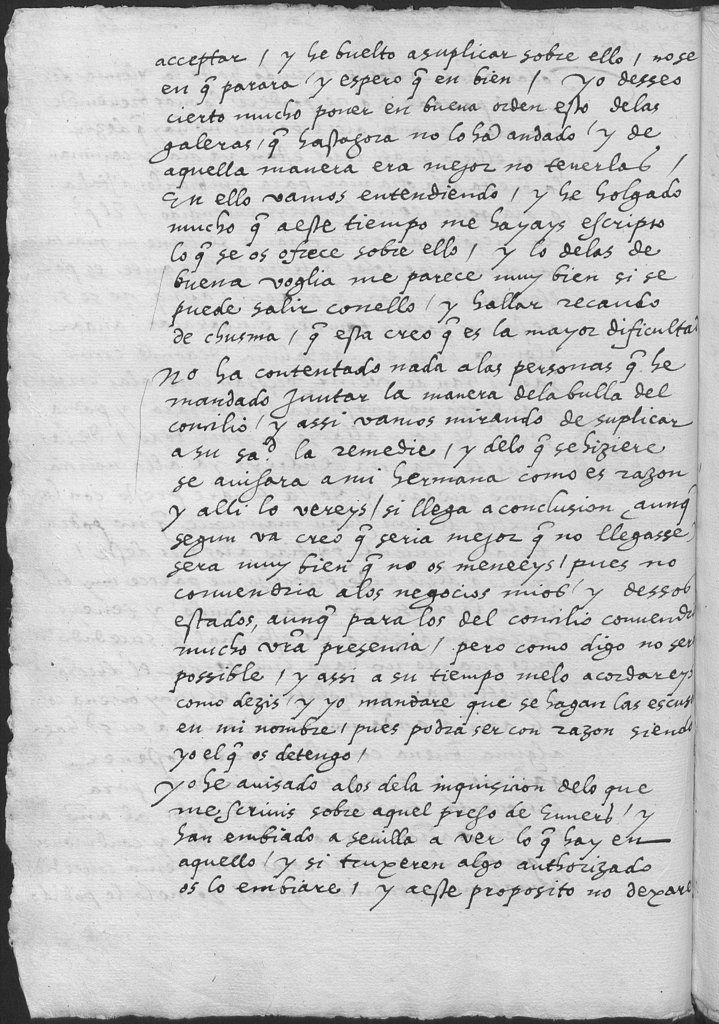 acceptar / y he buelto a suplicar sobre ello / no se
en q̃ parara / y espero q̃ en bien / yo desseo
cierto mucho poner en buena orden esto delas
galeras / q̃ hastagora no lo hã andado / y de
aquella manera era mejor no tenerlas /
En ello vamos entendiendo / y he holgado
mucho q̃ a este tiempo me hayays escripto
lo q̃ se os ofrece sobre ello / y lo delas de
buena voglia me parece muy bien si se
puede salir conello / y hallar recaudo
de chusma / q̃ esta creo q̃ es la mayor dificulta
No ha contentado nada alas personas q̃ he
mandado Juntar la manera dela bulla del
concilio / y assi vamos mirando de suplicar
a su sa.d la remedie / y delo q̃ se hiziere
se auisara a mi hermana como es razon
y alli lo vereys / si llega a conclusion aunq̃
segun va creo q̃ seria mejor q̃ no llegasse
sera muy bien q̃ no os meneeys / pues no
conuendria alos negocios mios / y dessos
estados, aunq̃ para los del concilio conuendri
mucho vr̃a presencia / pero como digo no ser
possible / y assi a su tiempo melo acordarey
como dezis / y yo mandare que se hagan las escus
en mi nombre / pues podra ser con razon siendo
yo el q̃ os detengo /
yo he auisado alos dela inquisicion delo que
me scriuis sobre aquel preso de / y
han embiado a seuilla a ver lo q̃ hay en
aquello / y si truxeren algo authorizado
os lo embiare / y a este proposito no dexare